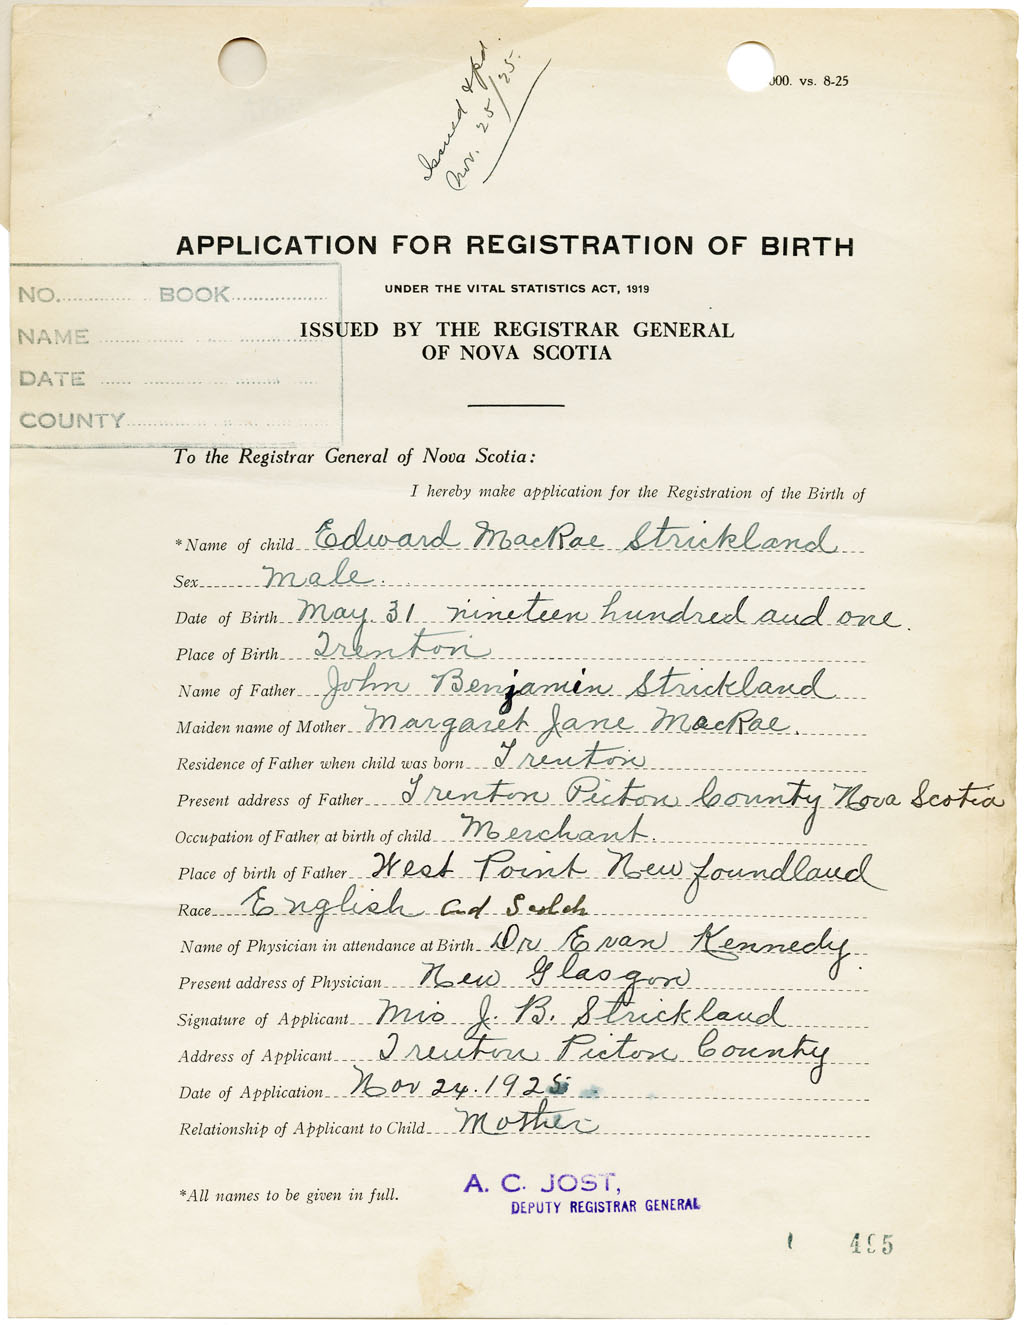 Issued & pd.
Nov. 25/25.
000. vs. 8-25
APPLICATION FOR REGISTRATION OF BIRTH
UNDER THE VITAL STATISTICS ACT, 1919
ISSUED BY THE REGISTRAR GENERAL
OF NOVA SCOTIA
NO. BOOK
NAME
DATE
COUNTY
To the Registrar General of Nova Scotia:
I hereby make application for the Registration of the Birth of
*Name of child Edward MacRae Strickland
Sex Male.
Date of Birth May 31 nineteen hundred and one.
Place of Birth Trenton
Name of Father John Benjamin Strickland
Maiden name of Mother Margaret Jane MacRae.
Residence of Father when child was born Trenton
Present address of Father Trenton Pictou County Nova Scotia
Occupation of Father at birth of child Merchant.
Place of birth of Father West Point Newfoundland
Race English and Scotch
Name of Physician in attendance at Birth Dr Evan Kennedy.
Present address of Physician New Glasgow
Signature of Applicant Mrs J. B. Strickland
Address of Applicant Trenton Pictou County
Date of Application Nov 24. 1925
Relationship of Applicant to Child Mother
*All names to be given in full.
A. C. JOST,
DEPUTY REGISTRAR GENERAL
495